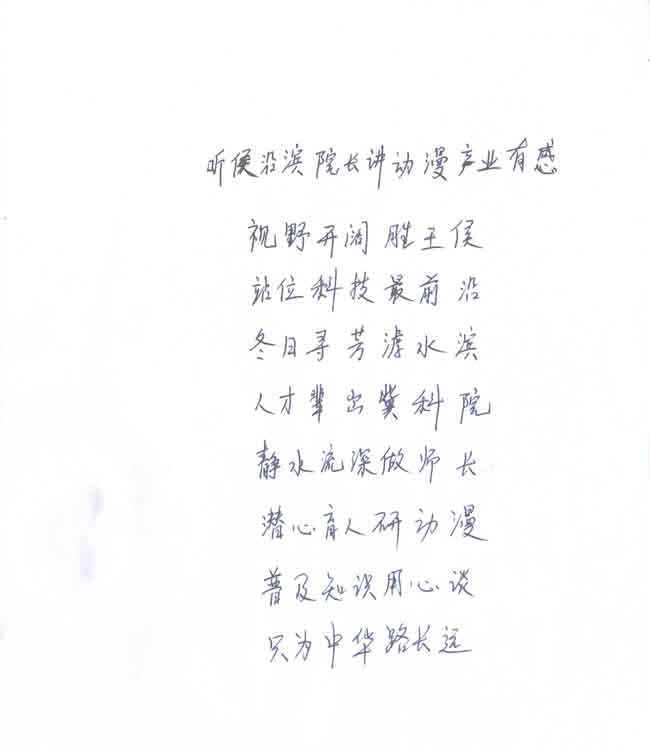 听侯沿滨院长讲动漫产业有感
视野开阔胜王侯
站位科技最前沿
冬日寻芳滹水滨
人才辈出冀科院
静水流深做师长
潜心育人研动漫
普及知识用心谈
只为中华路长远